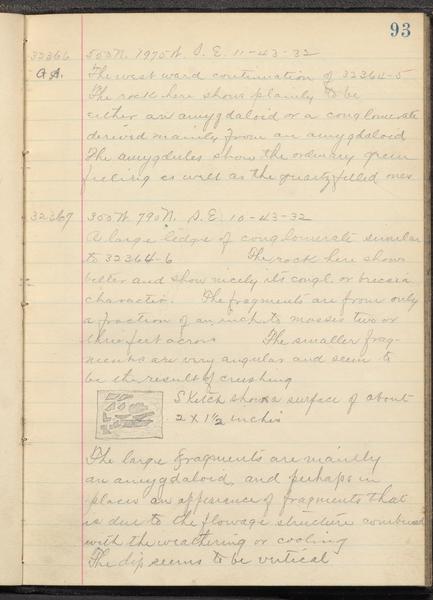 93
32366 500 N. 1975 W. S. E. 11-43-32
A.A. The west ward continuation of 32364-5
The rock here shows plainly to be
either an amygdaloid or a conglomerate
derived mainly from an amygdaloid
The amygdules show the ordinary green
filling as well as the quartz filled ones
32367 300 N 790 W. S. E. 10-43-32
A large ledge of conglomerate similar
to 32364-6 The rock here shows
better and show nicely its congl. or breccia
character. The fragments are from only
a fraction of an inch to masses two or
three feet across The smaller frag-
ments are very angular and seem to
be the result of crushing
Sketch shows a surface of about
2 x 1½ inches
The large fragments are mainly
an amygdaloid, and perhaps in
places an apperence of fragments that
is due to the flowage structure combined
with the weathering or cooling
The dip seems to be vertical